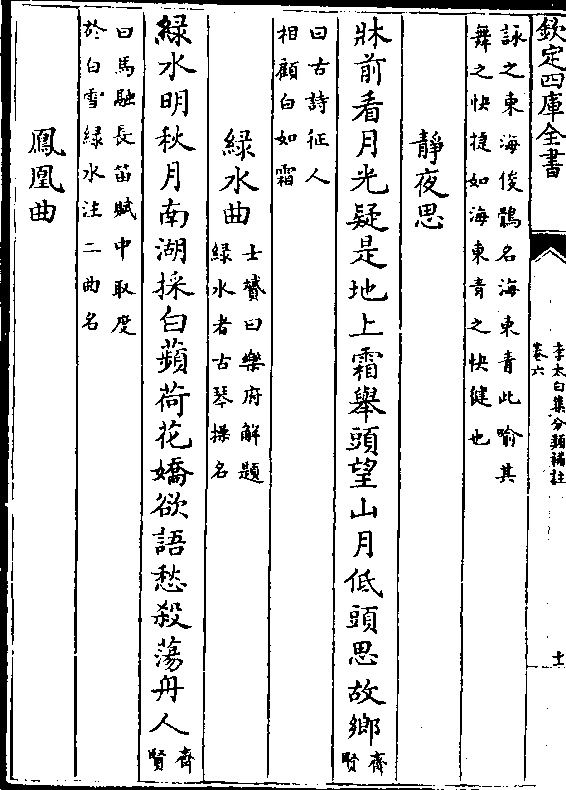 欽定四庫全書
李太白集分類補註
卷六
十
詠之東海俊鶻名海東青此喻其
舞之快捷如海東青之快健也
靜夜思
牀前看月光疑是地上霜舉頭望山月低頭思故鄉齊賢
曰古詩征人
相顧白如霜
綠水曲
士贇曰樂府解題
綠水者古琴操名
綠水明秋月南湖採白蘋荷花嬌欲語愁殺蕩舟人齊賢
曰馬融長笛賦中取度
於白雪綠水注二曲名
鳳凰曲